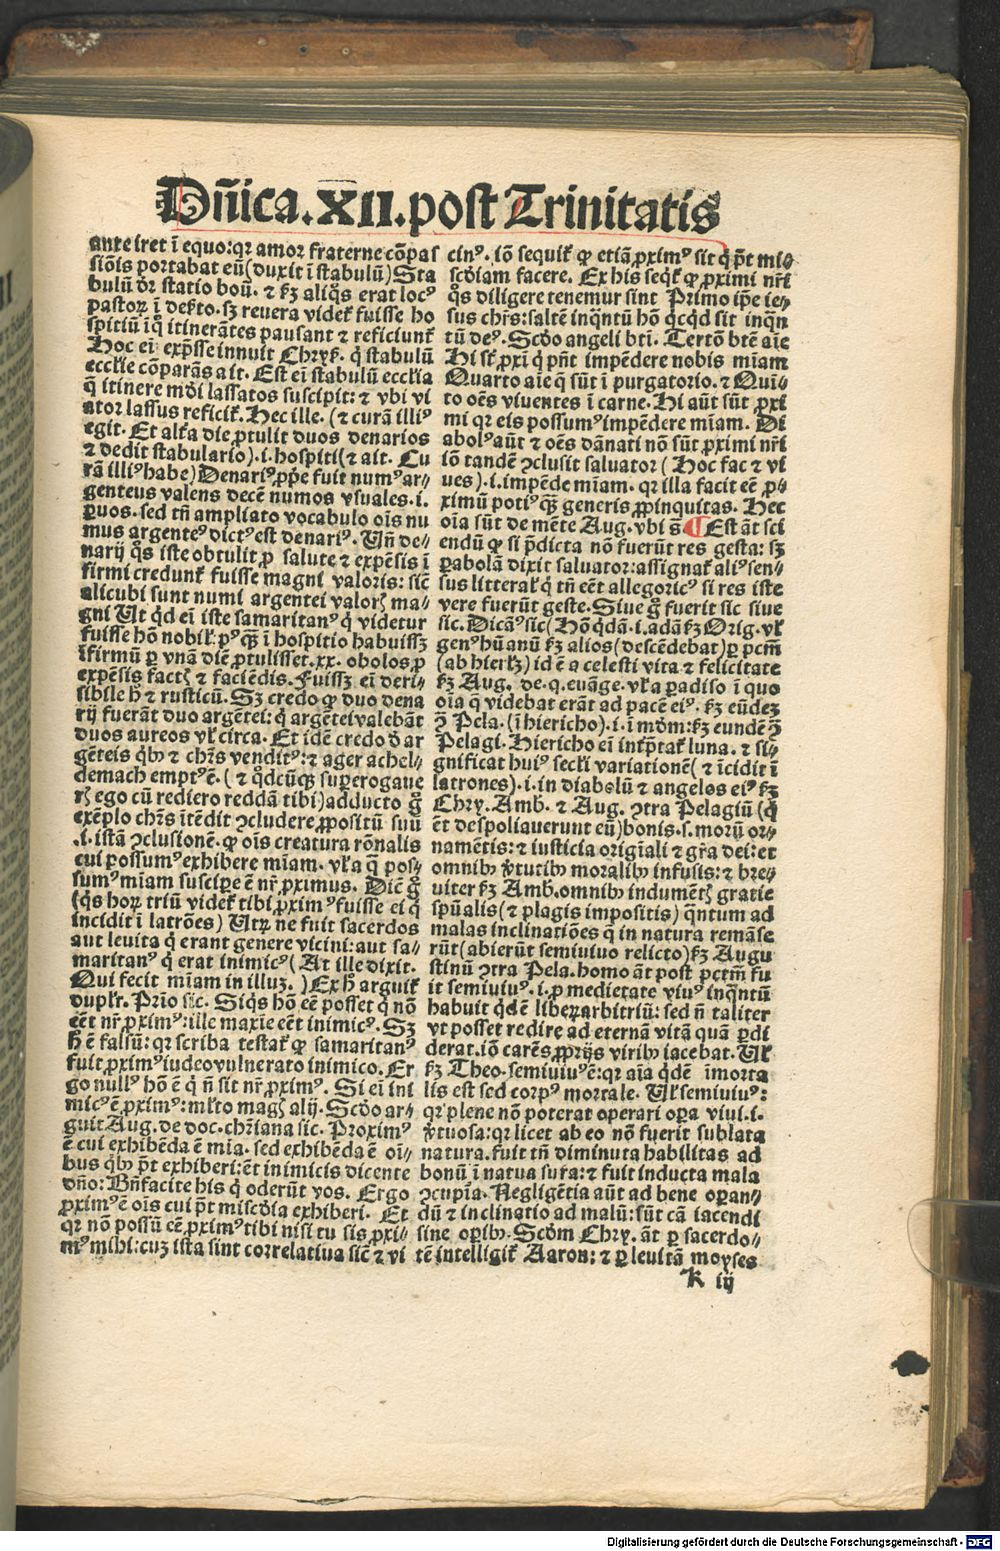 Dñica.XII.post Trinitatis
ante iret ī equo:qꝛ amor fraterne cōpas
siōis portabat eū(duxit ī stabulū)Sta
bulū dꝛ statio boū.⁊ ſꝫ aliq̄s erat locꝰ
pastoꝝ ī deſto.sꝫ revera videt̄ fuisse ho
spitiū īq̄ itinerātes pausant ⁊ reficiunt̄
Hoc eī exp̄sse innuit Chryſ. q̄ stabulū
ecclie cōparās ait. Est eī stabulū ecclia
q̄ itinere mūdi lassatos suscipit:⁊ vbi vi
ator lassus reficit̄. Hec ille. (⁊ curā illiꝰ
egit. Et alſa die ꝓtulit duos denarios
⁊ dedit stabulario).i.hospiti(⁊ ait. Cu
rā illiꝰ habe)Denariꝰ ꝓpe fuit numꝰ ar⸗
genteus valens decē numos vsuales.i.
ꝑuos. sed tñ ampliato vocabulo oīs nu
mus argenteꝰ dictꝰ est denariꝰ. Uñ de⸗
narij q̄s iste obtulit ꝓ salute ⁊ expēsis ī
firmi credunt̄ fuisse magni valoris: sicē
alicubi sunt numi argentei valorꝭ ma⸗
gni Ut qd eī iste samaritanꝰ q̄ videtur
fuisse hō nobil' pꝰ qꝫ ī hospitio habuissꝫ
īfirmū ꝑ vnā diē ꝓtulisset.xx. obolos ꝓ
expēsis factꝭ ⁊ faciēdis. Fuissꝫ eī deri⸗
sibile h̄ ⁊ rusticū. Sꝫ credo ꝙ duo dena
rij fuerāt duo argētei: q̄ argētei valebāt
duos aureos vꝉ circa. Et idē credo d̄ ar
gēteis qꝰ ⁊ chr̄s venditꝰ:⁊ ager achel⸗
demach emptꝰ ē.(⁊ qdcūqꝫ superogaue
rꝭ ego cū rediero reddā tibi)adducto g̊
exēplo chr̄s itēdit ꝯcludere ꝓpositū suū
.i. istā ꝯclusionē. ꝙ oīs creatura rōnalis
cui possumꝰ exhibere mīam. vꝉ a q̄ pos⸗
sumꝰ mīam suscipe ē nr̄ ꝓximus. Diē g̊
(qs hoꝝ triū videt̄ tibi ꝓximꝰ fuisse ei q̄
incidit ī latrōes) Utꝝ ne fuit sacerdos
aut leuita q̄ erant genere vicini:aut sa⸗
maritanꝰ q̄ erat inimicꝰ(At ille dixit.
Qui fecit mīam in illuꝫ.)Ex h̄ arguit̄
dupl'r. Prīo sic. Siqs hō eē posset q̄ nō
eēt nr̄ ꝓximꝰ:ille maxīe eēt inimicꝰ. Sꝫ
h̄ ē falsū: qꝛ scriba testat̄ ꝙ samaritanꝰ
fuit ꝓximꝰ iudeo vulnerato inimico. Er
go nullꝰ hō ē q̄ ñ sit nr̄ ꝓximꝰ. Si eī ini
micꝰ ē ꝓximꝰ:mlto magꝭ alij. Scd̄o ar⸗
guit Aug. de doc. chr̄iana sic. Proximꝰ
ē cui exhibēda ē mīa. sed exhibēda ē oī⸗
bus qꝰ p̄t exhiberi:ēt inimicis dicente
dño: Bñfacite his q̄ oderūt vos. Ergo
ꝓximꝰ ē oīs cui p̄t miscd̄ia exhiberi. Et
qꝛ nō possū eē ꝓximꝰ tibi nisi tu sis ꝓxi⸗
mꝰ mihi:cuꝫ ista sint correlatiua sic ⁊ vi
cinꝰ. iō sequit̄ ꝙ etiā ꝓximꝰ sit q̄ p̄t mi⸗
scd̄iam facere. Ex his seqt̄ ꝙ ꝓximi nr̄i
q̄s diligere tenemur sint Primo ip̄e ie⸗
sus chr̄s:saltē inqntū hō qcqd sit inqn
tū deꝰ. Scd̄o angeli bti. Tertō btē aīe
Hi sꝉ ꝓxī q̄ pñt impēdere nobis mīam
Quarto aīe q̄ sūt ī purgatorio. ⁊ Qui⸗
to oēs viuentes ī carne. Hi aūt sūt ꝓxi
mi qꝛ eis possumꝰ impēdere mīam. Di
abolꝰ aūt ⁊ oēs dānati nō sūt ꝓximi nr̄i
iō tandē ꝯclusit saluator (Hoc fac ⁊ vi
ues).i. impēde mīam. qꝛ illa facit eē ꝓ⸗
ximū potiꝰ qꝫ generis ꝓpinquitas. Hec
oīa sūt de mēte Aug. vbi s̄ ¶Est āt sci
endū ꝙ si p̄dicta nō fuerūt res gesta: sꝫ
ꝑabolā dixit saluator:assignat̄ aliꝰ sen⸗
sus litteral' q̄ tñ eēt allegoricꝰ si res iste
vere fuerūt geste. Siue g̊ fuerit sic siue
sic. Dicāꝰ sic(Hō qdā.i.adā ſꝫ Orig. vꝉ
genꝰ hūanū ſꝫ alios(descēdebat)ꝑ pctm̄
(ab hierlꝫ) id ē a celesti vita ⁊ felicitate
ſꝫ Aug. de.q.euāge. vꝉ a ꝑadiso ī quo
oīa q̄ videbat erāt ad pacē eiꝰ. ſꝫ eūdeꝫ
ꝯ̄ Pela. (ī hiericho).i. ī mūdm:ſꝫ eundē ꝯ̄
Pelagi. Hiericho eī int̄p̄tat̄ luna. ⁊ si⸗
gnificat huiꝰ secli variationē(⁊ īcidit ī
latrones).i. in diabolū ⁊ angelos eiꝰ ſꝫ
Chry. Amb. ⁊ Aug. ꝯtra Pelagiū(q̄
ēt despoliauerunt eū)bonis.s.morū or⸗
namētis:⁊ iusticia origīali ⁊ gr̄a dei:et
omnibꝰ v̄tutibꝰ moralibꝰ infusis:⁊ bre⸗
uiter ſꝫ Amb. omnibꝰ indumētꝭ gratie
spūalis(⁊ plagis impositis) qntum ad
malas inclinatiōes q̄ in natura remāse
rūt(abierūt semiuiuo relicto)ſꝫ Augu
stinū ꝯtra Pela. homo āt post pctm̄ fu
it semiuiuꝰ.i. ꝓ medietate viuꝰ inqntū
habuit qdē liberꝫ arbitriū: sed ñ taliter
vt posset redire ad eternā vitā quā ꝑdi
derat. iō carēs ꝓprijs viribꝰ iacebat. Uꝉ
ſꝫ Theo. semiuiuꝰ ē:qꝛ aīa qdē īmorta
lis est sed corpꝰ mortale. Uꝉ semiuiuꝰ:
qꝛ plene nō poterat operari oꝑa viui.i.
v̄tuosa:qꝛ licet ab eo nō fuerit sublata
natura. fuit tñ diminuta habilitas ad
bonū ī natua sura:⁊ fuit inducta mala
ꝯcupīa. Negligētia aūt ad bene oꝑan⸗
dū ⁊ inclinatio ad malū:sūt cā iacendi
sine oꝑibꝰ. Scd̄m Chry. āt ꝑ sacerdo⸗
tē intelligit̄ Aaron:⁊ ꝑ leuitā moyses
k ij
Digitalisierung gefördert durch die Deutsche Forschungsgemeinschaft - DFG